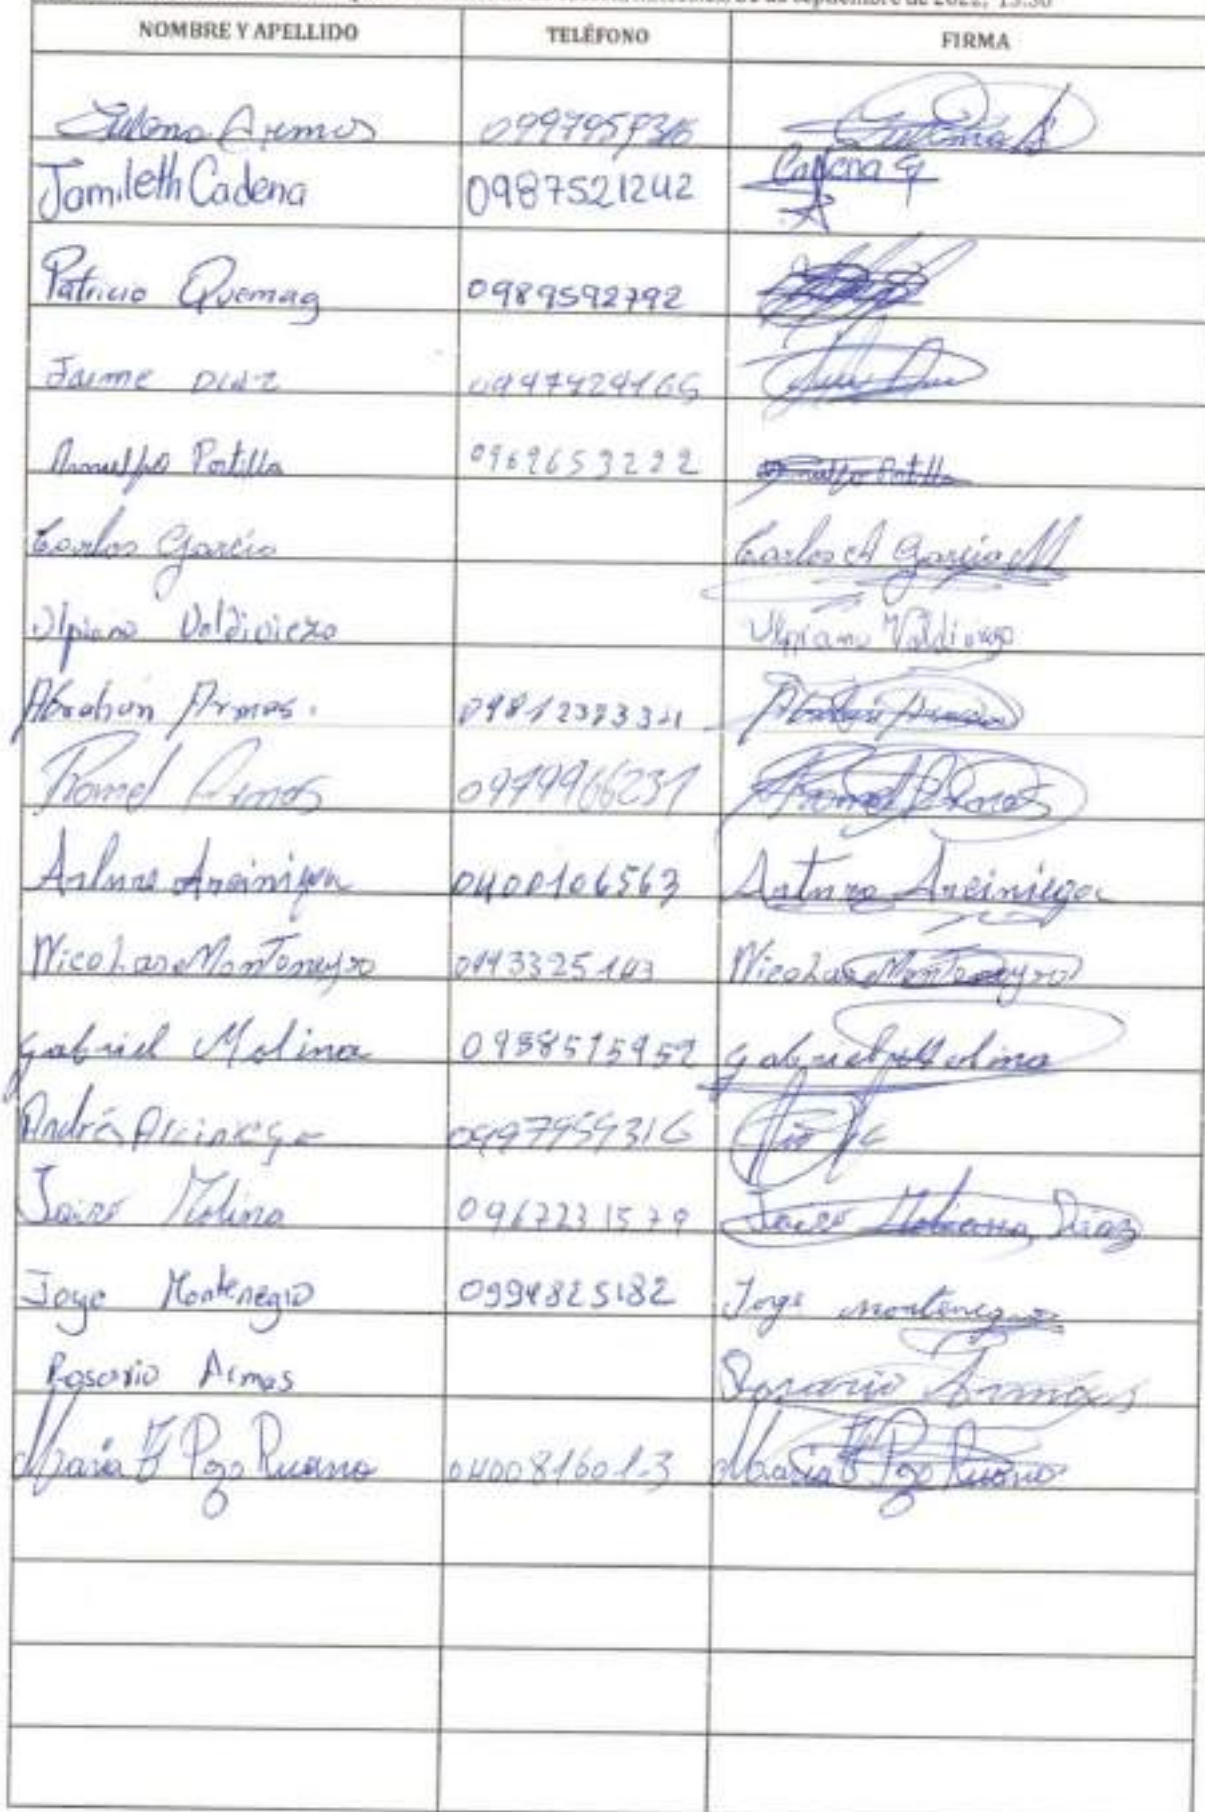 de septiembre de 2022, 15:30
NOMBRE Y APELLIDO TELÉFONO FIRMA
Armos 0997959316
Jamileth Cadena 0987521242 Cadena G
Patricio Quemag 0989592792
Jaime Diaz
Arnulfo Portilla 0969653222 Arnulfo Portilla
Carlos Garcia Carlos A Garcia M
Ulpiano Valdiviezo Ulpiano Valdiviezo
Abrahan Armas. Abrahan Armas
Romel Armas 0979966231 Romel Armas
Arturo Arciniega 0400106563 Arturo Arciniega
Nicolas Montenegro Nicolas Montenegro
Gabriel Molina 0988515952 Gabriel Molina
Andrés Arciniega 0997959316
Jairo Molina 0967231579 Jairo Molina Diaz
Jorge Montenegro 0994825182 Jorge montenegro
Rosario Armas Rosario Armas
Maria F Pozo Ruano 040081601-3 Maria F Pozo Ruano